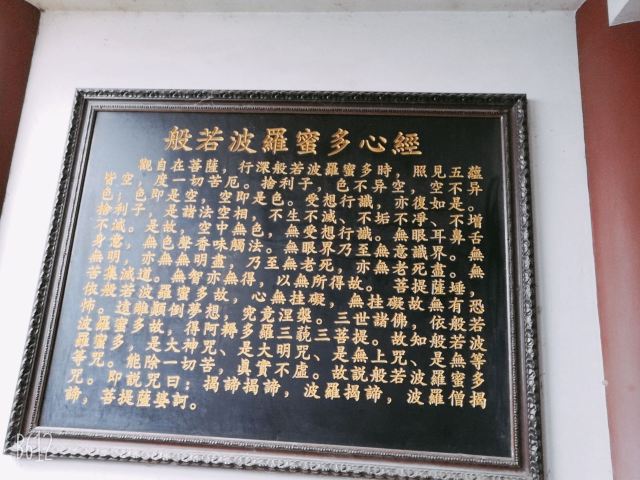 般若波羅蜜多心經
觀自在菩薩，行深般若波羅蜜多時，照見五蘊
皆空，度一切苦厄。捨利子，色不异空，空不异
色；色即是空，空即是色。受想行識，亦復如是。
捨利子，是諸法空相，不生不滅、不垢不凈、不增
不減。是故，空中無色，無受想行識。無眼耳鼻舌
身意，無色聲香味觸法。無眼界乃至無意識界。無
無明，亦無無明盡，乃至無老死，亦無老死盡。無
苦集滅道。無智亦無得，以無所得故。菩提薩埵，
依般若波羅蜜多故，心無挂礙，無挂礙故無有恐
怖。遠離顛倒夢想，究竟涅槃。三世諸佛，依般若
波羅蜜多故，得阿耨多羅三藐三菩提。故知般若波
羅蜜多，是大神咒、是大明咒、是無上咒、是無等
等咒。能除一切苦，真實不虛。故説般若波羅蜜多
咒。即説咒曰：揭諦揭諦，波羅揭諦，波羅僧揭
諦，菩提薩婆訶。
B612